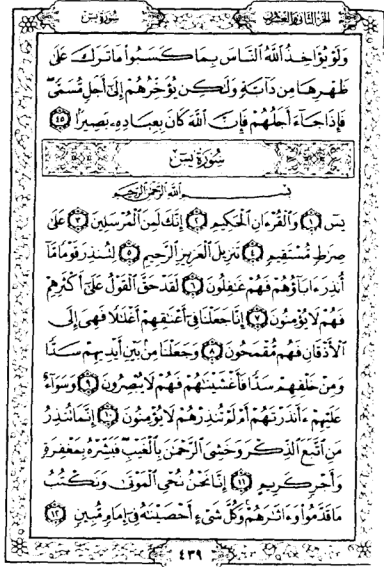 الجزء الثاني والعشرون سُورَةُ يسٓ
وَلَوْ يُؤَاخِذُ ٱللَّهُ ٱلنَّاسَ بِمَا كَسَبُوا۟ مَا تَرَكَ عَلَىٰ
ظَهْرِهَا مِن دَآبَّةٍ وَلَـٰكِن يُؤَخِّرُهُمْ إِلَىٰٓ أَجَلٍ مُّسَمًّى ۖ
فَإِذَا جَآءَ أَجَلُهُمْ فَإِنَّ ٱللَّهَ كَانَ بِعِبَادِهِۦ بَصِيرًۢا ٤٥
سُورَةُ يسٓ
بِسْمِ ٱللَّهِ ٱلرَّحْمَـٰنِ ٱلرَّحِيمِ
يسٓ ١ وَٱلْقُرْءَانِ ٱلْحَكِيمِ ٢ إِنَّكَ لَمِنَ ٱلْمُرْسَلِينَ ٣ عَلَىٰ
صِرَٰطٍ مُّسْتَقِيمٍ ٤ تَنزِيلَ ٱلْعَزِيزِ ٱلرَّحِيمِ ٥ لِتُنذِرَ قَوْمًا مَّآ
أُنذِرَ ءَابَآؤُهُمْ فَهُمْ غَـٰفِلُونَ ٦ لَقَدْ حَقَّ ٱلْقَوْلُ عَلَىٰٓ أَكْثَرِهِمْ
فَهُمْ لَا يُؤْمِنُونَ ٧ إِنَّا جَعَلْنَا فِىٓ أَعْنَـٰقِهِمْ أَغْلَـٰلًا فَهِىَ إِلَى
ٱلْأَذْقَانِ فَهُم مُّقْمَحُونَ ٨ وَجَعَلْنَا مِنۢ بَيْنِ أَيْدِيهِمْ سَدًّا
وَمِنْ خَلْفِهِمْ سَدًّا فَأَغْشَيْنَـٰهُمْ فَهُمْ لَا يُبْصِرُونَ ٩ وَسَوَآءٌ
عَلَيْهِمْ ءَأَنذَرْتَهُمْ أَمْ لَمْ تُنذِرْهُمْ لَا يُؤْمِنُونَ ١٠ إِنَّمَا تُنذِرُ
مَنِ ٱتَّبَعَ ٱلذِّكْرَ وَخَشِىَ ٱلرَّحْمَـٰنَ بِٱلْغَيْبِ ۖ فَبَشِّرْهُ بِمَغْفِرَةٍ
وَأَجْرٍ كَرِيمٍ ١١ إِنَّا نَحْنُ نُحْىِ ٱلْمَوْتَىٰ وَنَكْتُبُ
مَا قَدَّمُوا۟ وَءَاثَـٰرَهُمْ ۚ وَكُلَّ شَىْءٍ أَحْصَيْنَـٰهُ فِىٓ إِمَامٍ مُّبِينٍ ١٢
٤٣٩